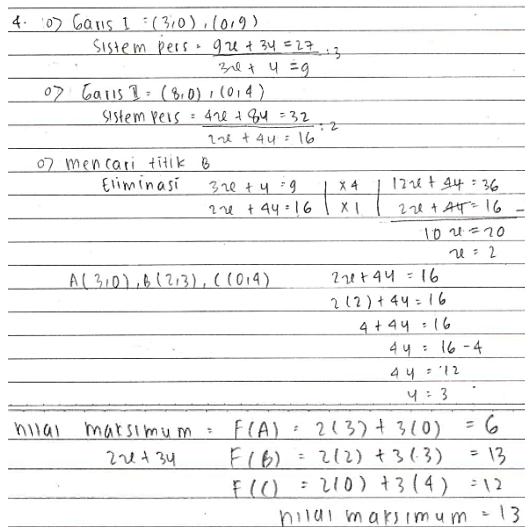 4. o) Garis I = (3,0), (0,9)
Sistem pers = 9x + 3y = 27 :3
3x + y = 9
o) Garis II = (8,0), (0,4)
Sistem pers = 4x + 8y = 32 :2
2x + 4y = 16
o) mencari titik B
Eliminasi 3x + y = 9 | x4 | 12x + 4y = 36
2x + 4y = 16 | x1 | 2x + 4y = 16 -
10x = 20
x = 2
A(3,0), B(2,3), C(0,4) 2x + 4y = 16
2(2) + 4y = 16
4 + 4y = 16
4y = 16 - 4
4y = 12
y = 3
nilai maksimum = F(A) = 2(3) + 3(0) = 6
2x + 3y F(B) = 2(2) + 3(3) = 13
F(C) = 2(0) + 3(4) = 12
nilai maksimum = 13